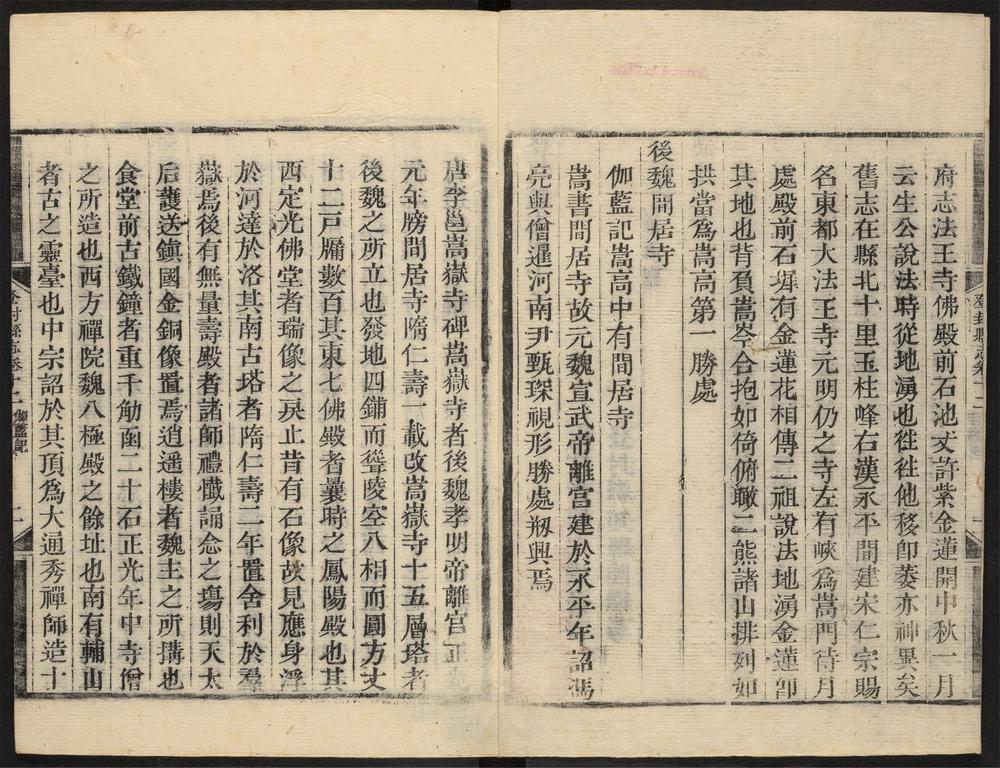 府志法王寺佛殿前石池丈許紫金蓮開中秋一月
云生公說法時從地湧也徃徃他移卽萎亦神異矣
舊志在縣北十里玉柱峰右漢永平間建宋仁宗賜
名東都大法王寺元明仍之寺左右有峽爲嵩門待月
處殿前石墀有金蓮花相傳二祖說法地湧金蓮卽
其地也背負嵩岑合抱如倚俯瞰二熊諸山排列如
拱當爲嵩高第一勝處
後魏閒居寺
伽藍記嵩高中有閒居寺
嵩書閒居寺故元魏宣武帝離宮建於永平年詔馮
亮與僧暹河南尹甄琛視形勝處剏興焉
唐李邕嵩嶽寺碑嵩嶽寺者後魏孝明帝離宮正
元年牓閒居寺隋仁壽一載改嵩嶽寺十五層塔者
後魏之所立也發地四鋪而聳陵空八相而圓方丈
十二戸牖數百其東七佛殿者曩時之鳳陽殿也其
西定光佛堂者瑞像之戾止昔有石像故見應身浮
於河達於洛其南古塔者隋仁壽二年置舍利於羣
嶽焉後有無量壽殿者諸師禮懺誦念之塲則天太
后護送鎮國金銅像置焉逍遥樓者魏主之所搆也
食堂前古鐵鐘者重千觔函二十石正光年中寺僧
之所造也西方禪院魏八極殿之餘址也南有輔山
者古之靈臺也中宗詔於其頂爲大通秀禪師造十